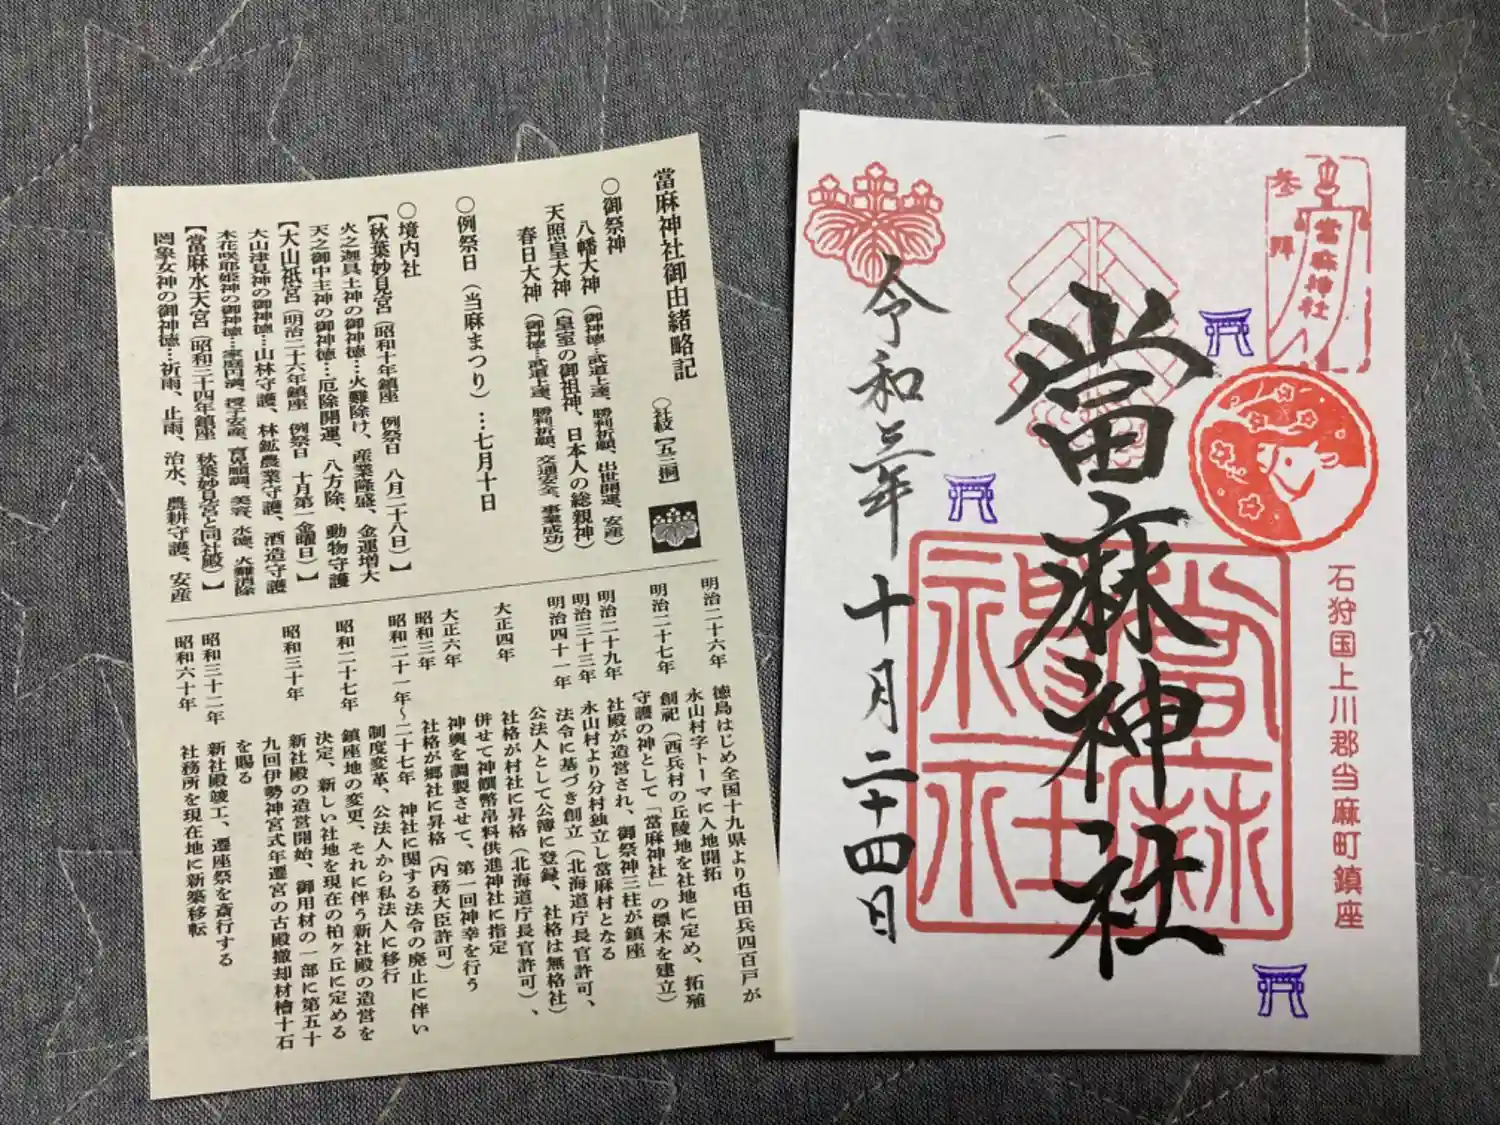 當麻神社御由緒略記
○社紋【五三桐】
○御祭神
八幡大神（御神徳…武道上達、勝利祈願、出世開運、安産）
天照皇大神（皇室の御祖神、日本人の総親神）
春日大神（御神徳…武道上達、勝利祈願、交通安全、事業成功）
○例祭日（当麻まつり）…七月十日
○境内社
【秋葉妙見宮（昭和十年鎮座　例祭日　八月二十八日）】
火之迦具土神の御神徳…火難除け、産業隆盛、金運増大
天之御中主神の御神徳…厄除開運、八方除、動物守護
【大山祇宮（明治二十六年鎮座　例祭日　十月第一金曜日）】
大山津見神の御神徳…山林守護、林鉱農業守護、酒造守護
木花咲耶姫神の御神徳…家庭円満、授子安産、育児順調、美容、水徳、火難消除
【當麻水天宮（昭和三十四年鎮座　秋葉妙見宮と同社殿）】
罔象女神の御神徳…祈雨、止雨、治水、農耕守護、安産
明治二十六年　徳島はじめ全国十九県より屯田兵四百戸が
永山村字トーマに入地開拓
明治二十七年　創祀（西兵村の丘陵地を社地に定め、拓殖
守護の神として「當麻神社」の標木を建立）
明治二十九年　社殿が造営され、御祭神三柱が鎮座
明治三十三年　永山村より分村独立し當麻村となる
明治四十一年　法令に基づき創立（北海道庁長官許可、
公法人として公簿に登録、社格は無格社）
大正四年　社格が村社に昇格（北海道庁長官許可）、
併せて神饌幣帛料供進神社に指定
大正六年　神輿を調製させて、第一回神幸を行う
昭和三年　社格が郷社に昇格（内務大臣許可）
昭和二十一年～二十七年　神社に関する法令の廃止に伴い
制度変革、公法人から私法人に移行
昭和二十七年　鎮座地の変更、それに伴う新社殿の造営を
決定、新しい社地を現在の柏ヶ丘に定める
昭和三十年　新社殿の造営開始、御用材の一部に第五十
九回伊勢神宮式年遷宮の古殿撤却材檜十石
を賜る
昭和三十二年　新社殿竣工、遷座祭を斎行する
昭和六十年　社務所を現在地に新築移転
參拜
當麻神社
石狩国上川郡当麻町鎮座
當麻神社
當麻神社
令和三年十月二十四日